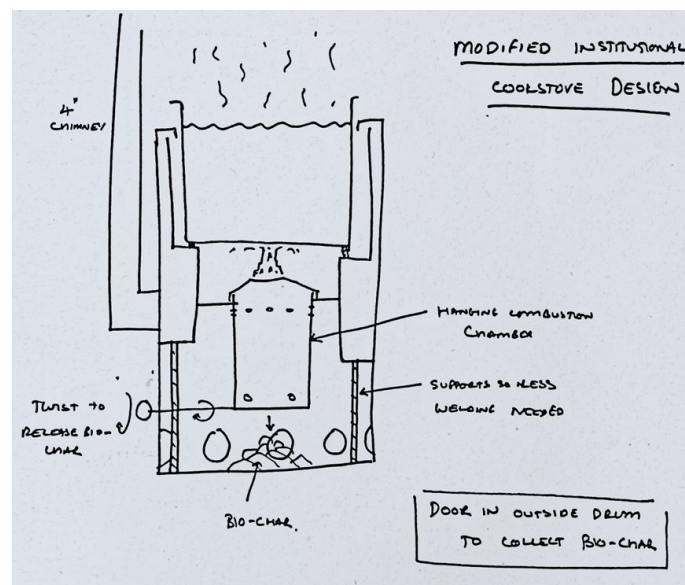 MODIFIED INSTITUSIONAL
COOLSTOVE DESIGN
4"
CHIMNEY
HANGING COMBUSTION
CHAMBER
SUPPORTS SO LESS
WELDING NEEDED
TWIST TO
RELEASE BIO-
CHAR
BIO-CHAR.
DOOR IN OUTSIDE DRUM
TO COLLECT BIO-CHAR